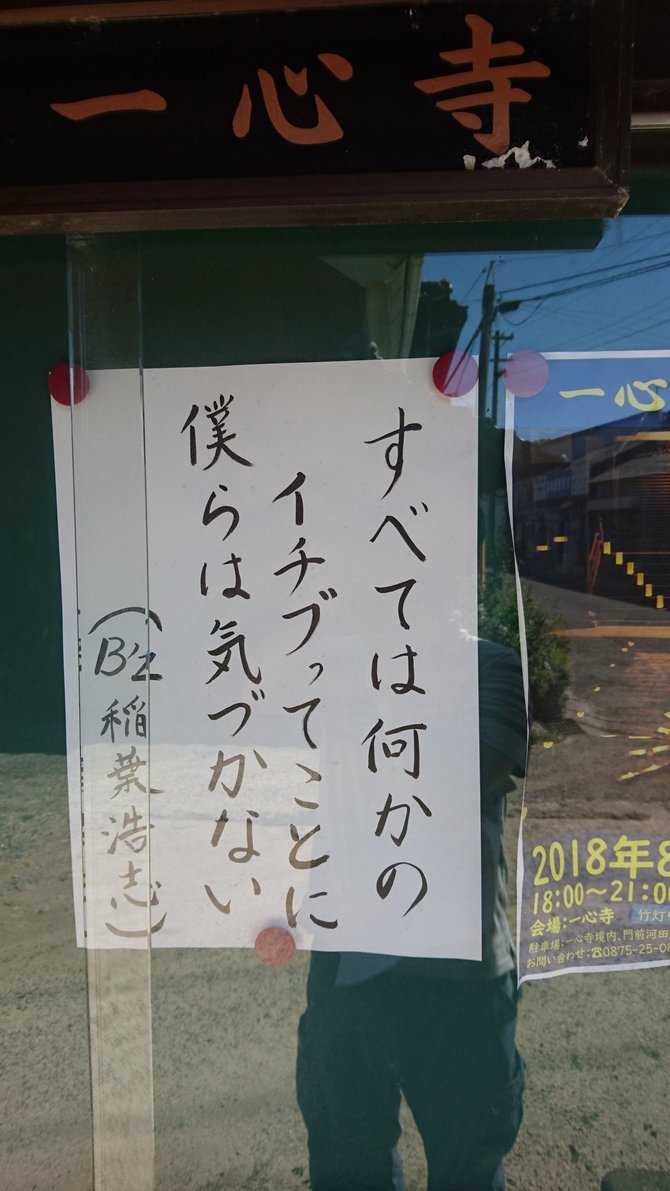 一心寺
すべては何かの
イチブってことに
僕らは気づかない
(B'z 稲葉浩志)
一心
2018年8
18:00～21:00
会場:一心寺
竹灯
駐車場:一心寺境内、門前河田
お問い合わせ:☎0875-25-08